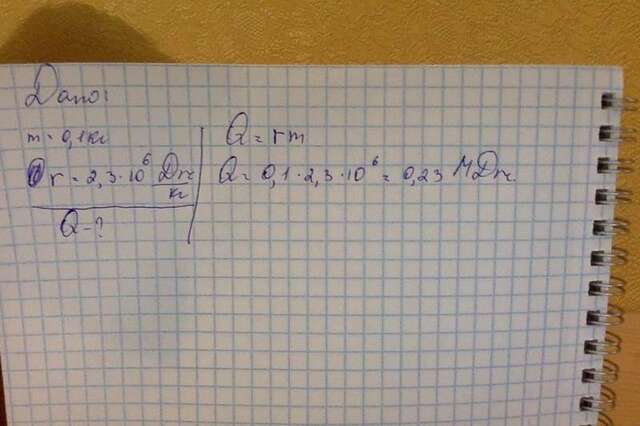 Дано:
m = 0,1 кг
r = 2,3·10⁶ Дж/кг
Q - ?
Q = rm
Q = 0,1·2,3·10⁶ = 0,23 МДж.